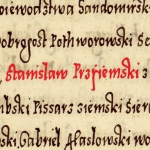 iewodztwa Sandomirsk
Dobrgost Pothworowski Se
Stanislaw Przziemski z
mbski Pissarz ziemski Siera
ski Gabriel Hasłowski wo